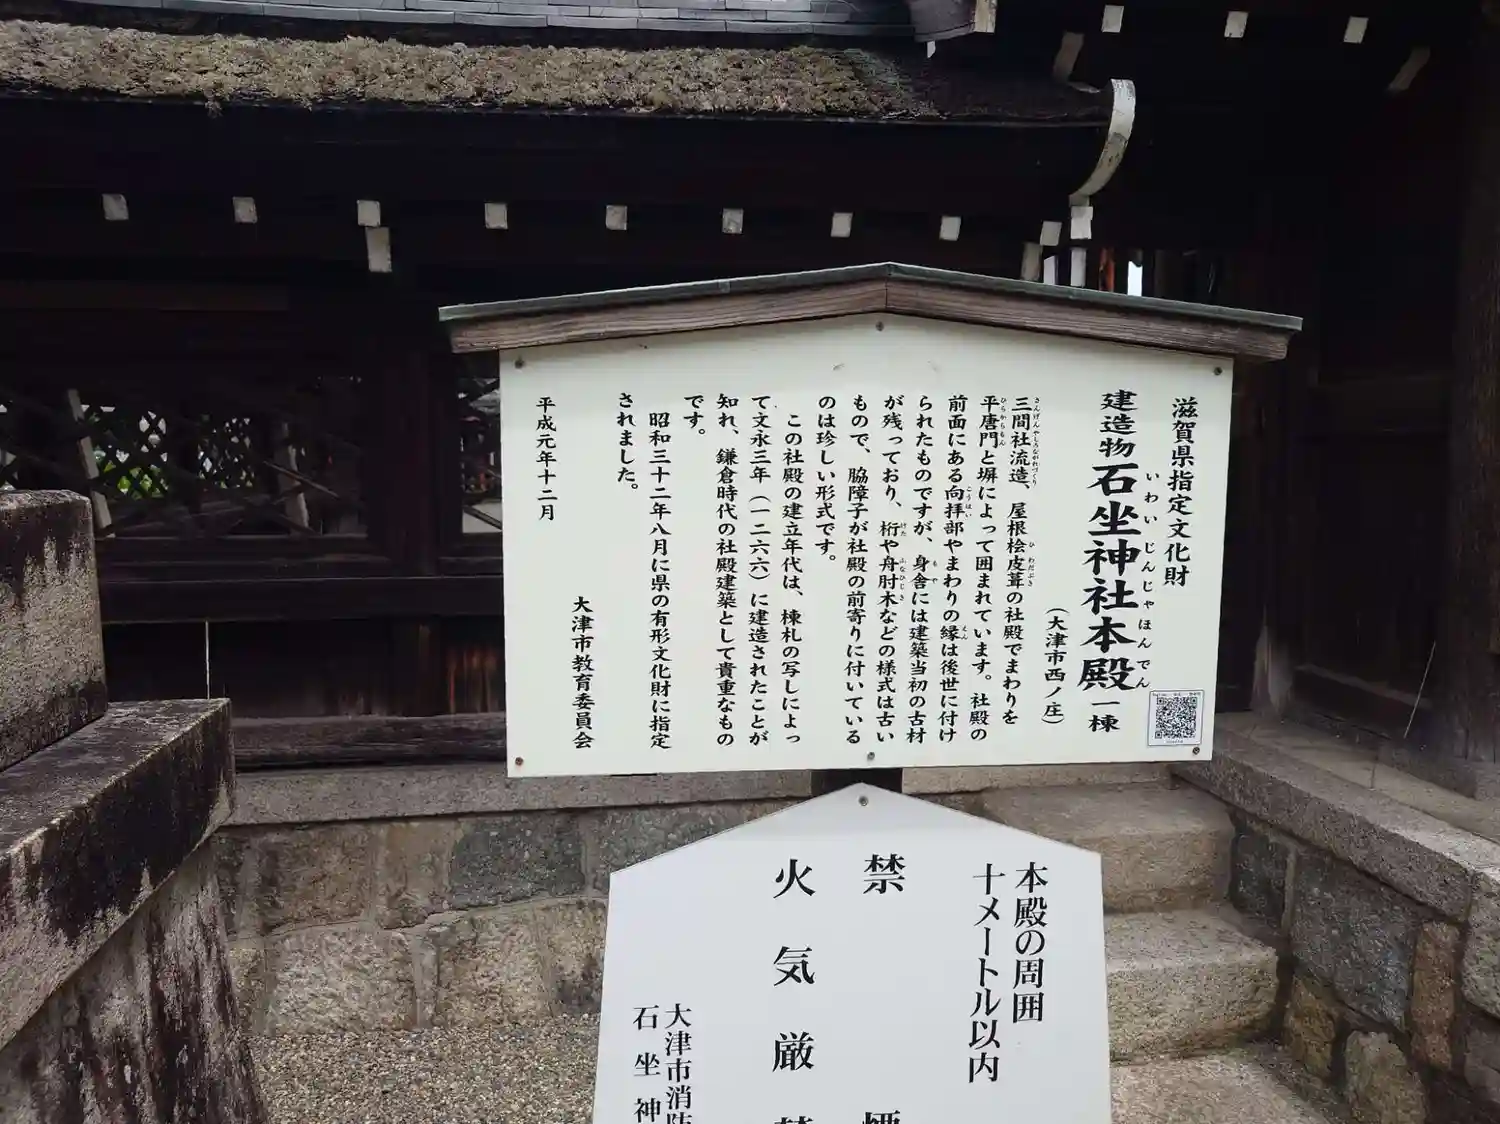 滋賀県指定文化財
建造物 石坐神社本殿 一棟
いわい じんじゃほんでん
(大津市西ノ庄)
三間社流造、屋根桧皮葺の社殿でまわりを
さんげんやしろながれづくり ひ わだぶき
平唐門と塀によって囲まれています。社殿の
ひらからもん
前面にある向拝部やまわりの縁は後世に付け
こうはい えん
られたものですが、身舎には建築当初の古材
もや
が残っており、桁や舟肘木などの様式は古い
けた ふなひじき
もので、脇障子が社殿の前寄りに付いている
のは珍しい形式です。
この社殿の建立年代は、棟札の写しによっ
て文永三年(一二六六)に建造されたことが
知れ、鎌倉時代の社殿建築として貴重なもの
です。
昭和三十二年八月に県の有形文化財に指定
されました。
平成元年十二月
大津市教育委員会
本殿の周囲
十メートル以内
禁煙
火気厳
大津市消防
石坐神